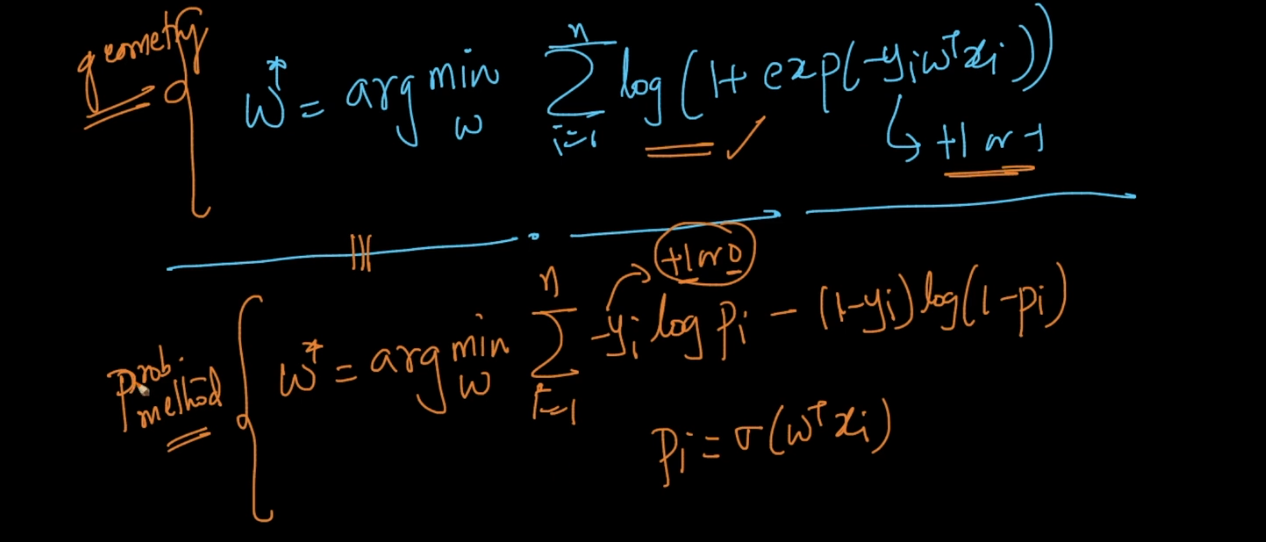 geometry
w* = arg min_w Σ_{i=1}^{n} log(1+ exp(-yᵢwᵀxᵢ))
↳ +1 or -1
|||
+1 or 0
prob. method
w* = arg min_w Σ_{i=1}^{n} -yᵢ log pᵢ - (1-yᵢ) log(1-pᵢ)
pᵢ = σ(wᵀxᵢ)